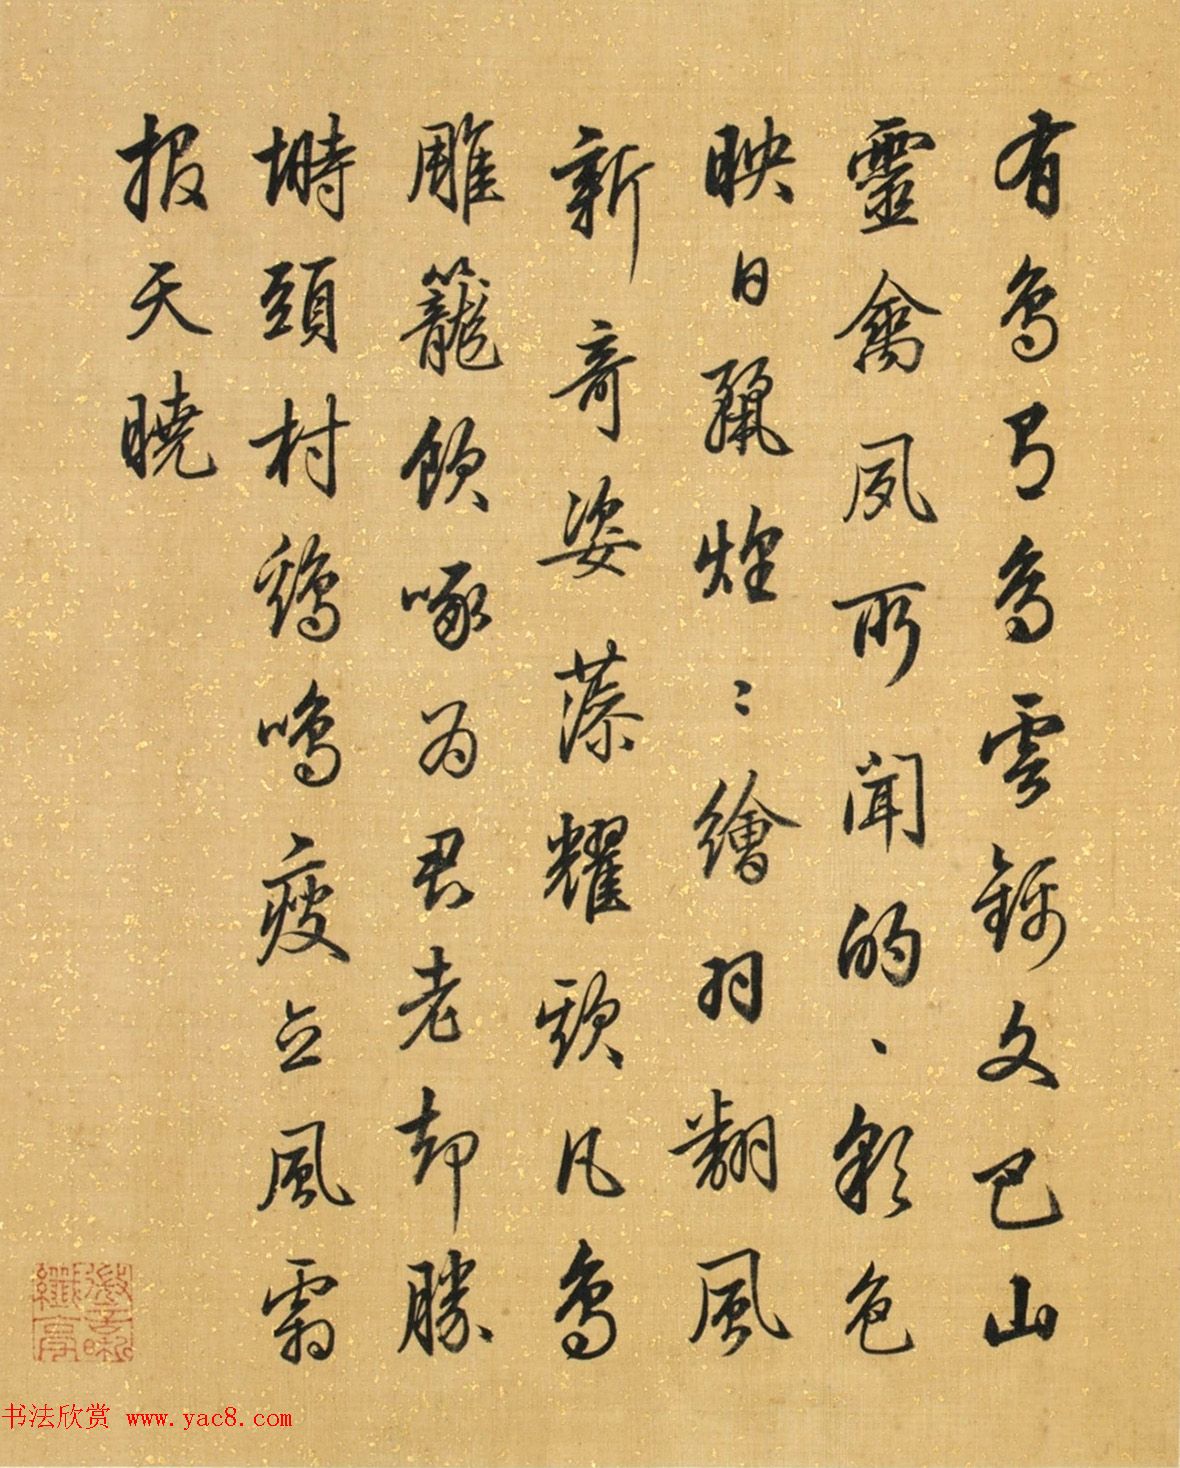 有鳥有鳥雲錦文巴山
靈禽夙所聞的、彩色
映日麗煌〻繪羽翻風
新奇姿藻耀頭凡鳥
雕籠飲啄為君老却勝
塒頭村鷄鳴瘦立風霜
報天曉
书法欣赏 www.yac8.com